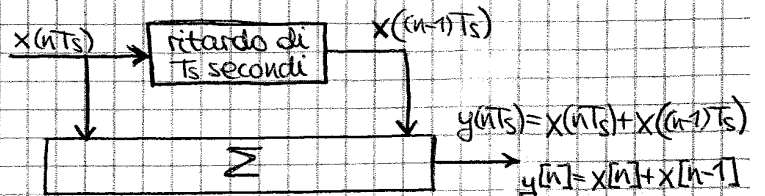 x(nTs)
ritardo di
Ts secondi
x((n-1)Ts)
Σ
y(nTs)=x(nTs)+x((n-1)Ts)
y[n]=x[n]+x[n-1]